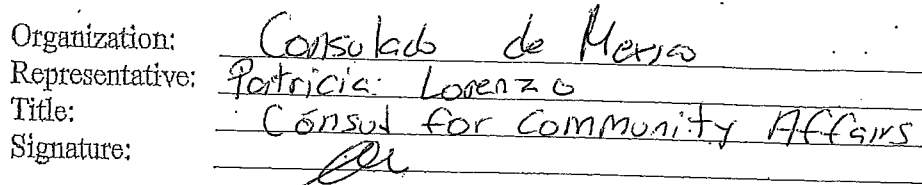 Organization: Consulado de Mexico
Representative: Patricia Lorenzo
Title: Cónsul for Community Affairs
Signature: